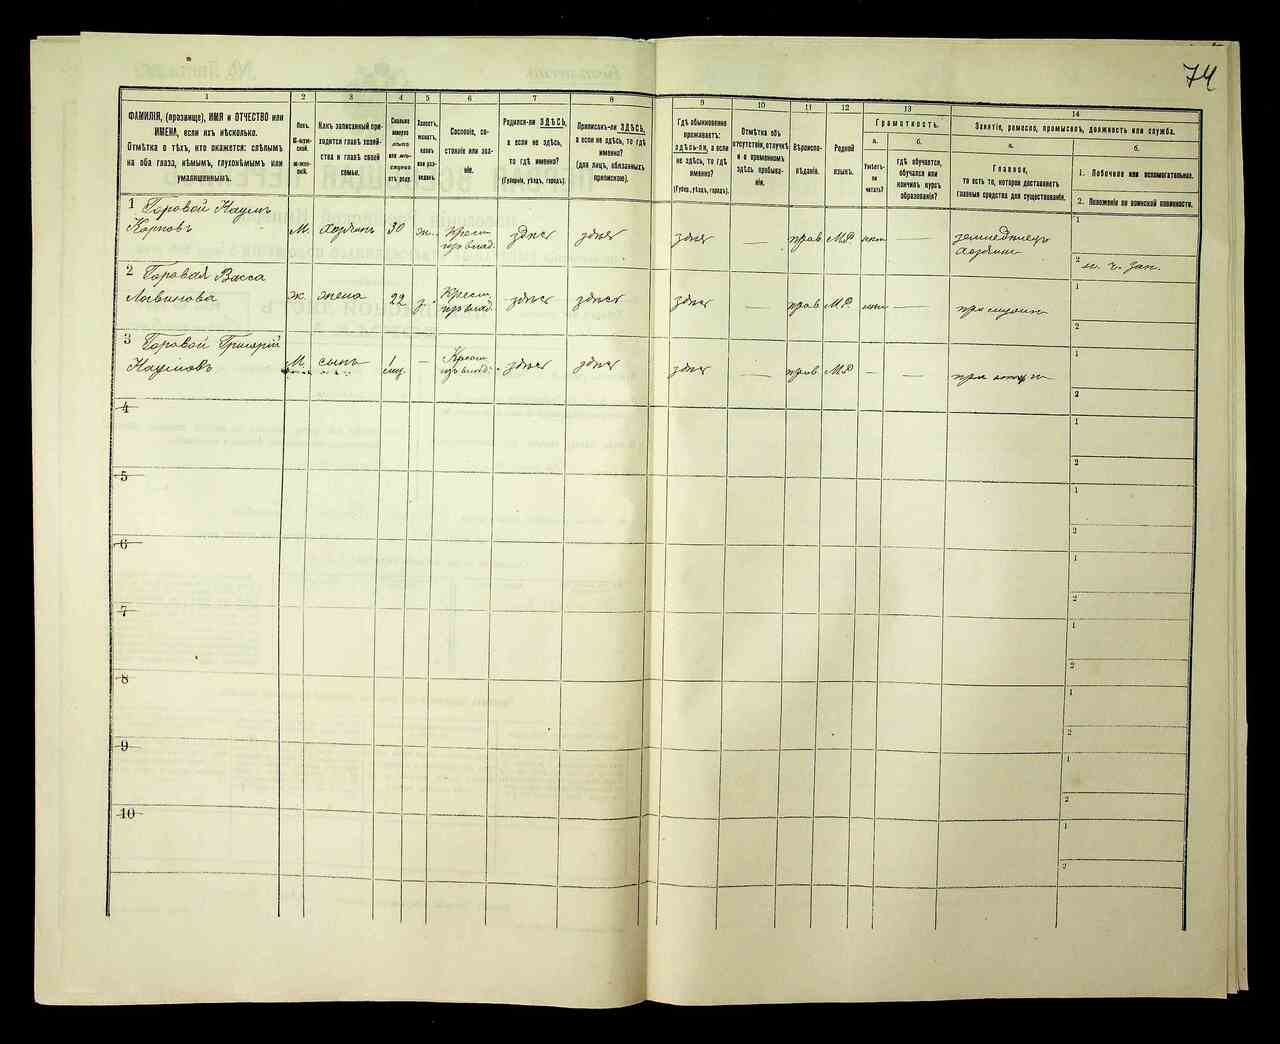 74
1
2
3
4
5
6
7
8
9
10
11
12
13
14
ФАМИЛІЯ, (прозвище), ИМЯ и ОТЧЕСТВО или
ИМЕНА, если ихъ нѣсколько.
Отмѣтка о тѣхъ, кто окажется: слѣпымъ
на оба глаза, нѣмымъ, глухонѣмымъ или
умалишеннымъ.
Полъ.
М-муж-
ской.
Ж-жен-
скій.
Какъ записанный при-
ходится главѣ хозяй-
ства и главѣ своей
семьи.
Сколько
минуло
лѣтъ
или мѣ-
сяцевъ
отъ роду.
Холостъ,
женатъ,
вдовъ
или раз-
веденъ.
Сословіе, со-
стояніе или зва-
ніе.
Родился-ли ЗДѢСЬ,
а если не здѣсь,
то гдѣ именно?
(Губернія, уѣздъ, городъ).
Приписанъ-ли ЗДѢСЬ,
а если не здѣсь, то гдѣ
именно?
(для лицъ, обязанныхъ
припискою).
Гдѣ обыкновенно
проживаетъ:
здѣсь-ли, а если
не здѣсь, то гдѣ
именно?
(Губер., уѣздъ, городъ).
Отмѣтка объ
отсутствіи, отлучкѣ
и о временномъ
здѣсь пребыва-
ніи.
Вѣроиспо-
вѣданіе.
Родной
языкъ.
Грамотность.
а.
б.
Умѣетъ-
ли
читать?
гдѣ обучается,
обучался или
кончилъ курсъ
образованія?
Занятіе, ремесло, промыселъ, должность или служба.
а.
б.
Главное,
то есть то, которое доставляетъ
главныя средства для существованія.
1. Побочное или вспомогательное.
2. Положеніе по воинской повинности.
1 Горовой Наумъ
Карповъ
М. Хозяинъ 30 ж. Крест. здѣсь здѣсь здѣсь — прав М.Р. земледѣлецъ
хозяинъ
1
2 н. ч. зап.
2 Горовая Васса
Логвинова
ж. жена 22 з. Крест. здѣсь здѣсь здѣсь — прав М.Р. —
1
2
3 Горовой Григорій
Наумовъ
М. сынъ 1 — Крест. здѣсь здѣсь здѣсь — прав М.Р. — — при отцѣ
1
2
4
1
2
5
1
2
6
1
2
7
1
2
8
1
2
9
1
2
10
1
2